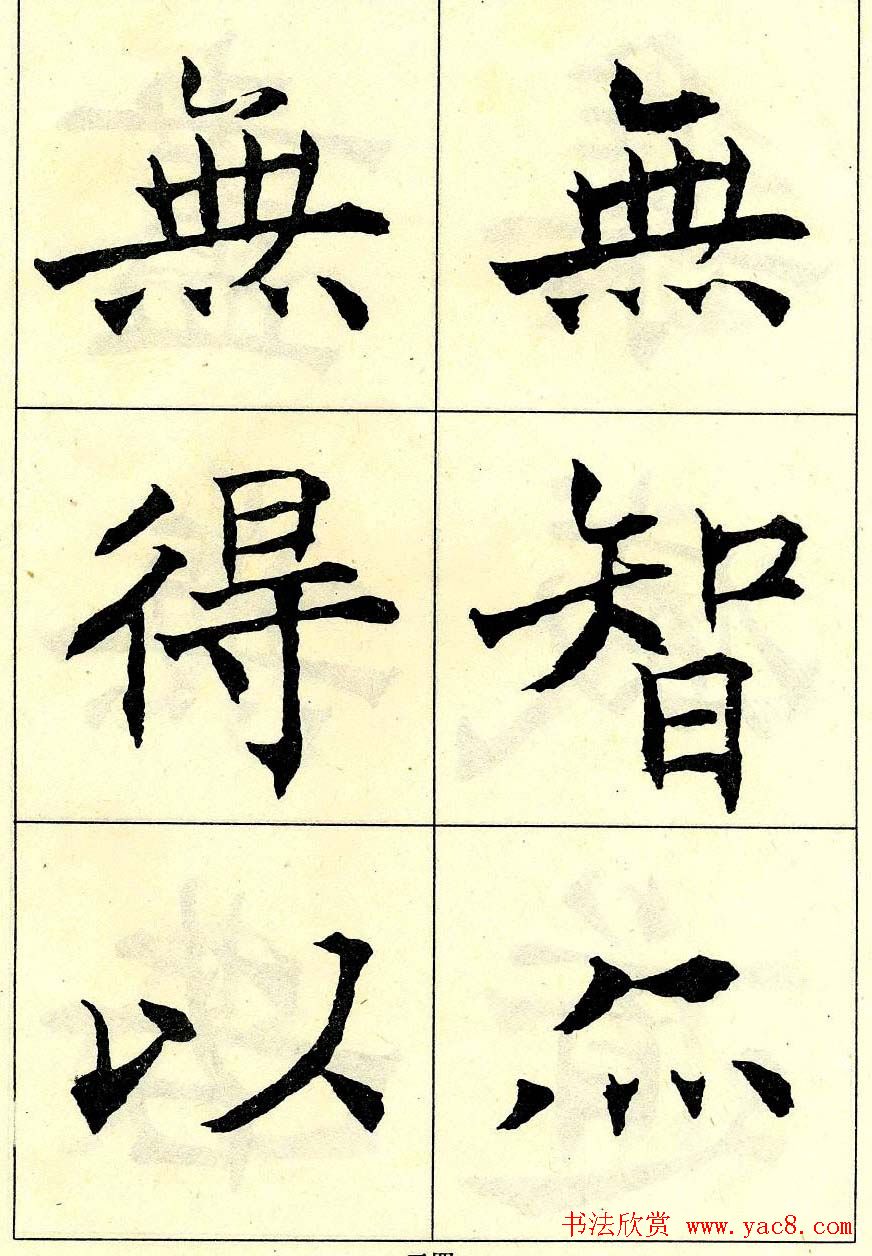 無智亦
無得以
书法欣赏 www.yac8.com